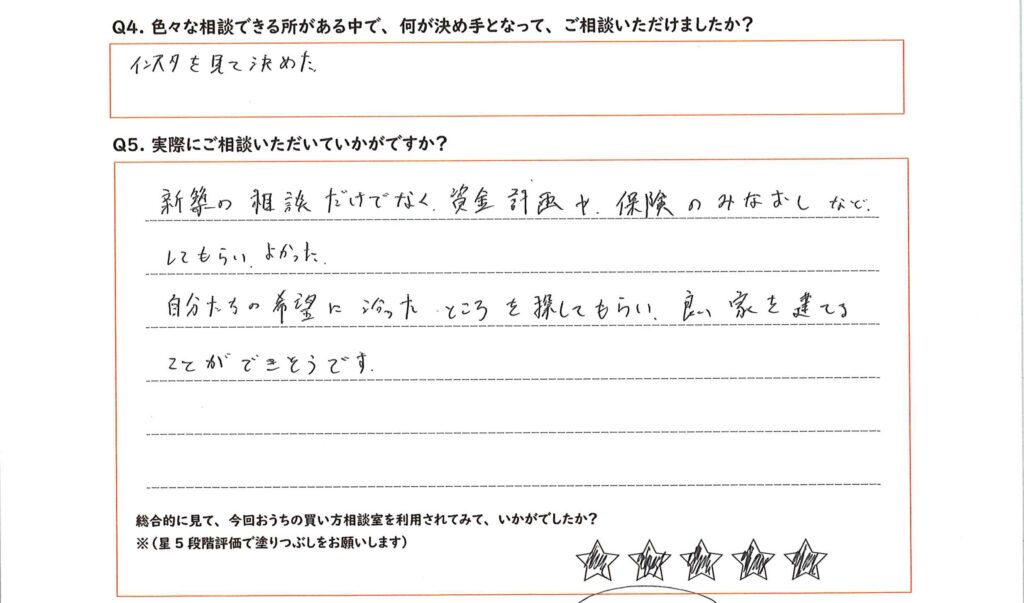 Q4. 色々な相談できる所がある中で、何が決め手となって、ご相談いただけましたか？
インスタを見て決めた。
Q5. 実際にご相談いただいていかがですか？
新築の相談だけでなく、資金計画や、保険のみなおしなど、
してもらい、よかった。
自分たちの希望に沿ったところを探してもらい、良い家を建てる
ことができそうです。
総合的に見て、今回おうちの買い方相談室を利用されてみて、いかがでしたか？
※（星5段階評価で塗りつぶしをお願いします）